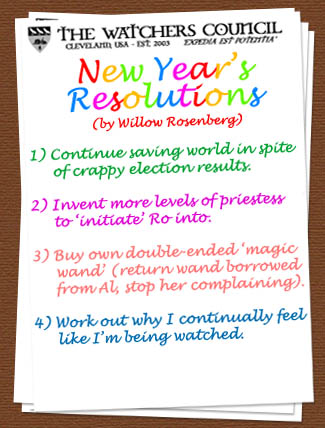 THE WATCHERS COUNCIL
CLEVELAND, USA - EST. 2003 EXPEDIA EST POTENTIA
New Year's
Resolutions
(by Willow Rosenberg)
1) Continue saving world in spite
of crappy election results.
2) Invent more levels of priestess
to 'initiate' Ro into.
3) Buy own double-ended 'magic
wand' (return wand borrowed
from Al, stop her complaining).
4) Work out why I continually feel
like I'm being watched.